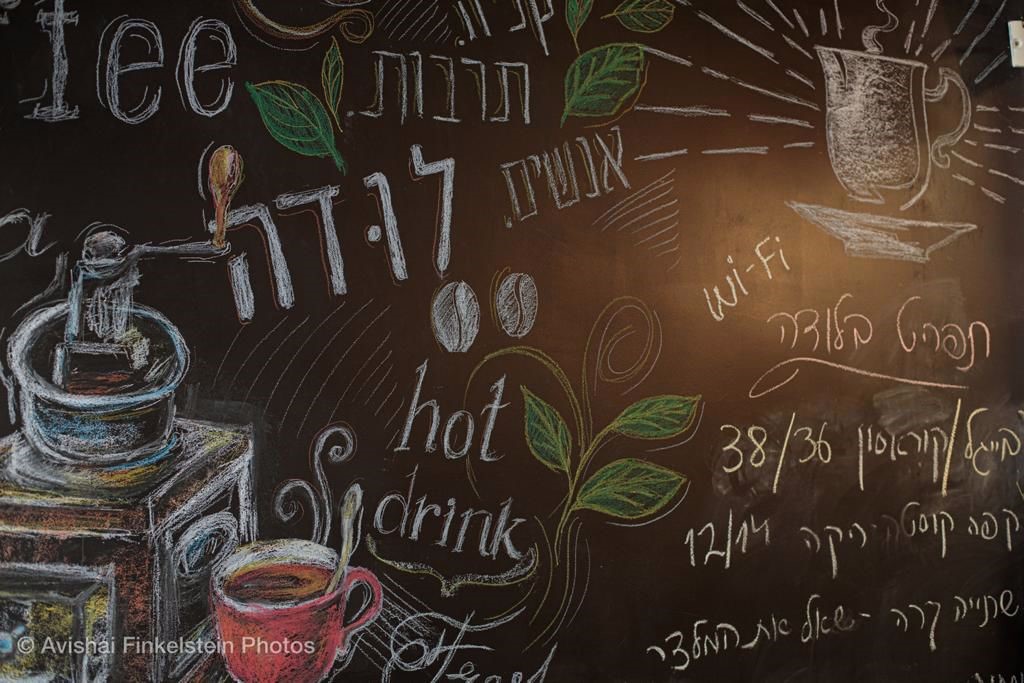 fee
קניה.
תרבות.
אנשים.
לודה
Wi-Fi
תפריט בלודה
בייגל/קוראסון 38/36
קפה קוסטה ריקה 12/14
שתייה קרה - שאל את המלצר
hot
drink
© Avishai Finkelstein Photos